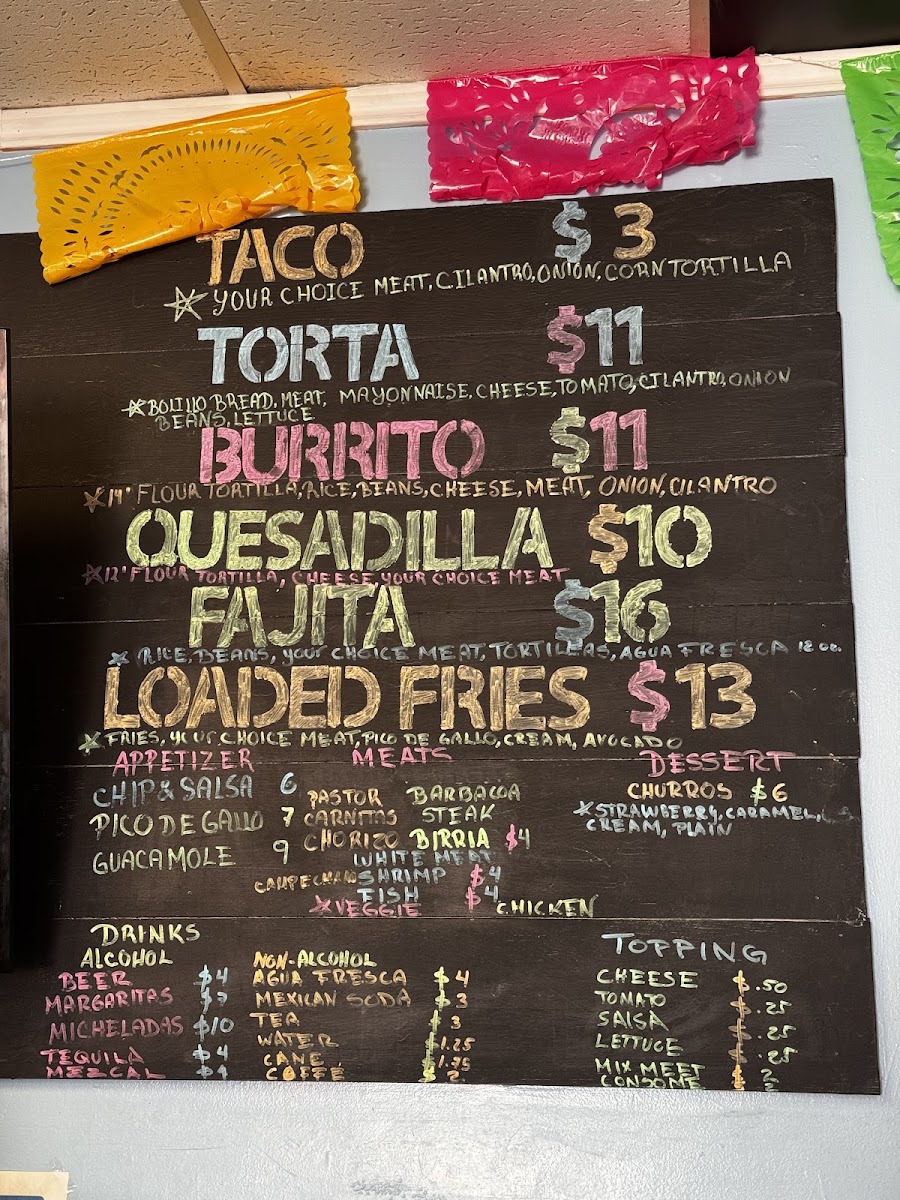 TACO $ 3
YOUR CHOICE MEAT, CILANTRO, ONION, CORN TORTILLA
TORTA $11
BOLILLO BREAD, MEAT, MAYONNAISE, CHEESE, TOMATO, CILANTRO, ONION
BEANS, LETTUCE
BURRITO $11
14" FLOUR TORTILLA, RICE, BEANS, CHEESE, MEAT, ONION, CILANTRO
QUESADILLA $10
12" FLOUR TORTILLA, CHEESE, YOUR CHOICE MEAT
FAJITA $16
RICE, BEANS, YOUR CHOICE MEAT, TORTILLAS, AGUA FRESCA 12 oz.
LOADED FRIES $13
FRIES, YOUR CHOICE MEAT, PICO DE GALLO, CREAM, AVOCADO
APPETIZER
CHIP & SALSA 6
PICO DE GALLO 7
GUACAMOLE 9
MEATS
PASTOR BARBACOA
CARNITAS STEAK
CHORIZO BIRRIA $4
WHITE MEAT
CAMPECHANO SHRIMP $4
FISH $4
VEGGIE CHICKEN
DESSERT
CHURROS $6
STRAWBERRY, CARAMEL,
CREAM, PLAIN
DRINKS
ALCOHOL
BEER $4
MARGARITAS
MICHELADAS $10
TEQUILA $4
MEZCAL
NON-ALCOHOL
AGUA FRESCA $4
MEXICAN SODA $3
TEA $3
WATER $1.25
CANE $1.75
COFFE $2
TOPPING
CHEESE $.50
TOMATO $.25
SALSA $.25
LETTUCE $.25
MIX MEET $2
CONSOME $